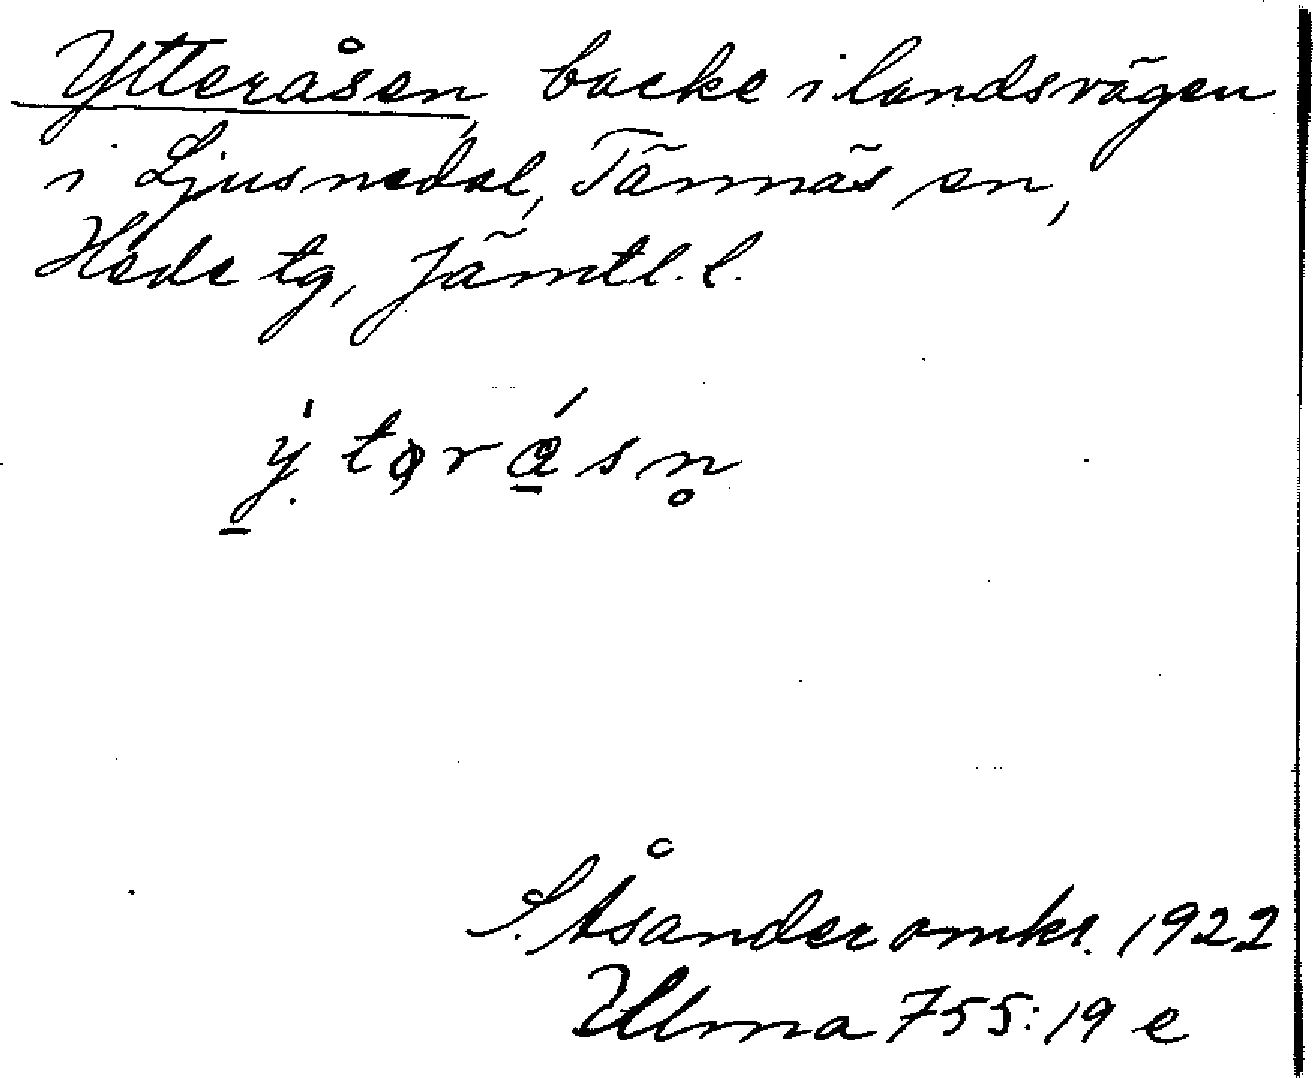 Ytteråsen, backe i landsvägen
i Ljusnedal, Tännäs sn,
Hede tg, Jämtl. l.
S. Åsander omkr. 1922
Ulma 755:19 e